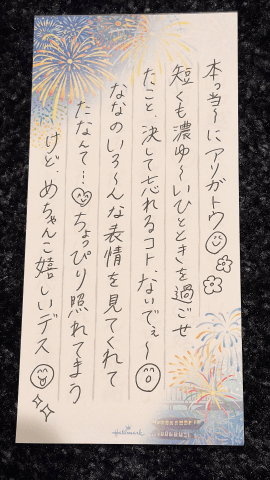 本っ当〜にアリガトウ
短くも濃ゆ〜いひとときを過ごせ
たこと、決して忘れるコトないでぇ〜
ななのいろ〜んな表情を見てくれて
たなんて…ちょっぴり照れてまう
けど、めちゃんこ嬉しいデス
Hallmark